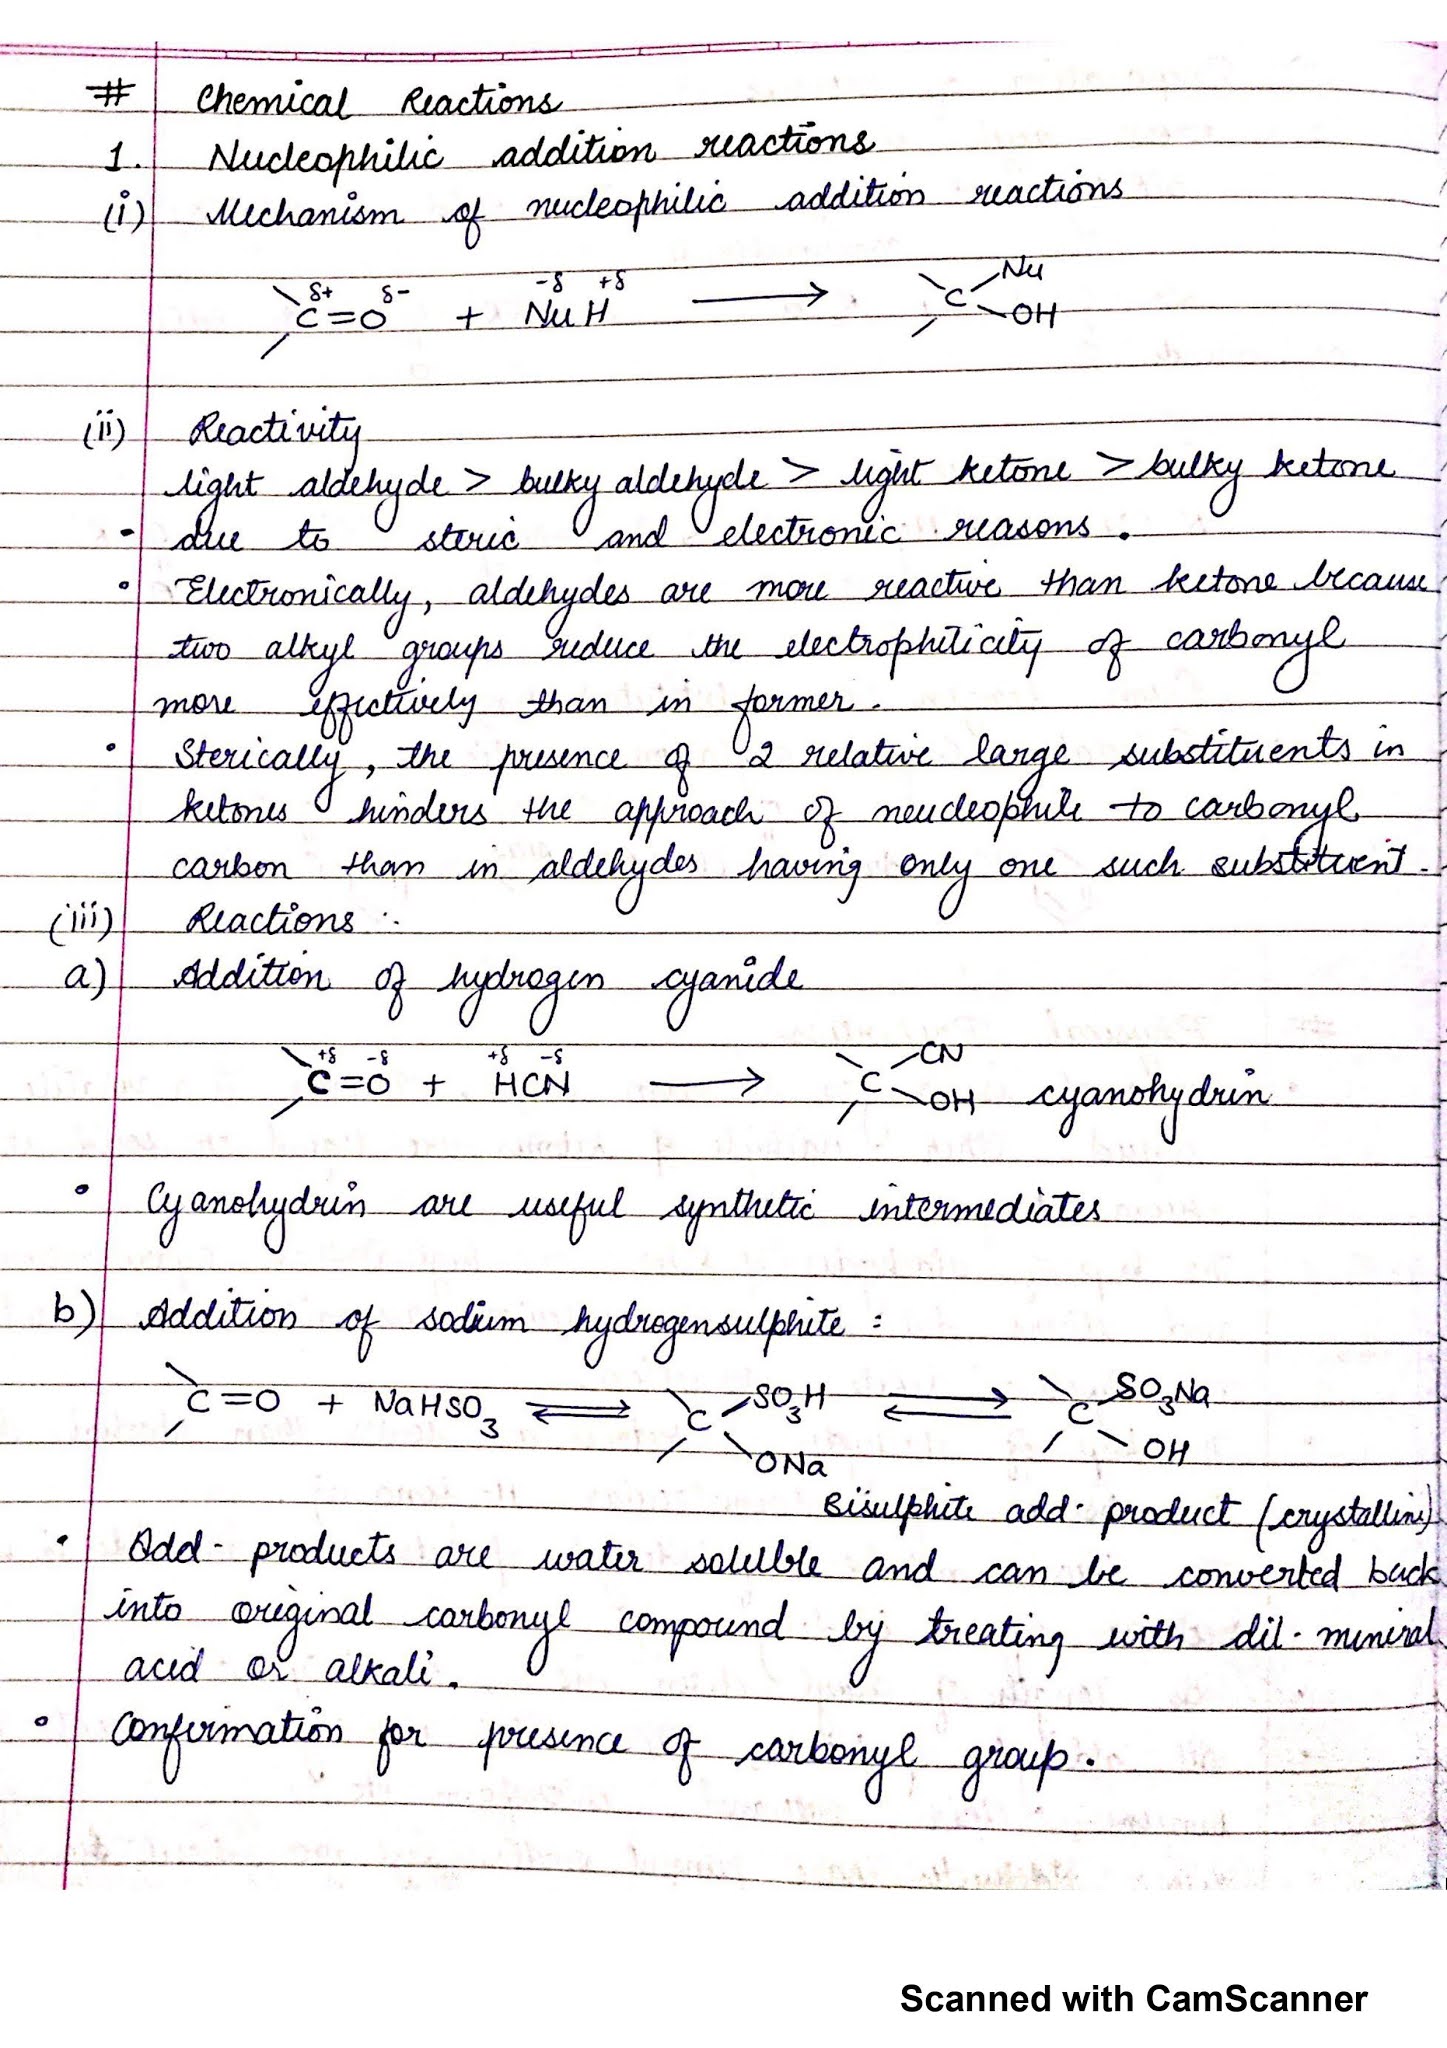 # Chemical Reactions
1. Nucleophilic addition reactions
(i) Mechanism of nucleophilic addition reactions
C=O + NuH ⟶ C Nu OH
δ+ δ- -δ +δ
(ii) Reactivity
light aldehyde > bulky aldehyde > light ketone > bulky ketone
• due to steric and electronic reasons.
• Electronically, aldehydes are more reactive than ketone because
two alkyl groups reduce the electrophilicity of carbonyl
more effectively than in former.
• Sterically, the presence of 2 relative large substituents in
ketones hinders the approach of neucleophile to carbonyl
carbon than in aldehydes having only one such substituent.
(iii) Reactions :
a) Addition of hydrogen cyanide
+δ -δ +δ -δ
C=O + HCN ⟶ C CN OH cyanohydrin
• Cyanohydrin are useful synthetic intermediates
b) Addition of sodium hydrogensulphite :
C=O + NaHSO3 ⇌ C SO3H ONa ⇌ C SO3Na OH
Bisulphite add. product (crystalline)
• Add. products are water soluble and can be converted back
into original carbonyl compound by treating with dil. mineral
acid or alkali.
• Confirmation for presence of carbonyl group.
Scanned with CamScanner